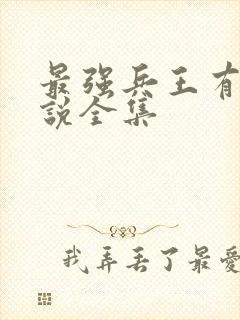 最强兵王有
說全集
我弄丢了最愛